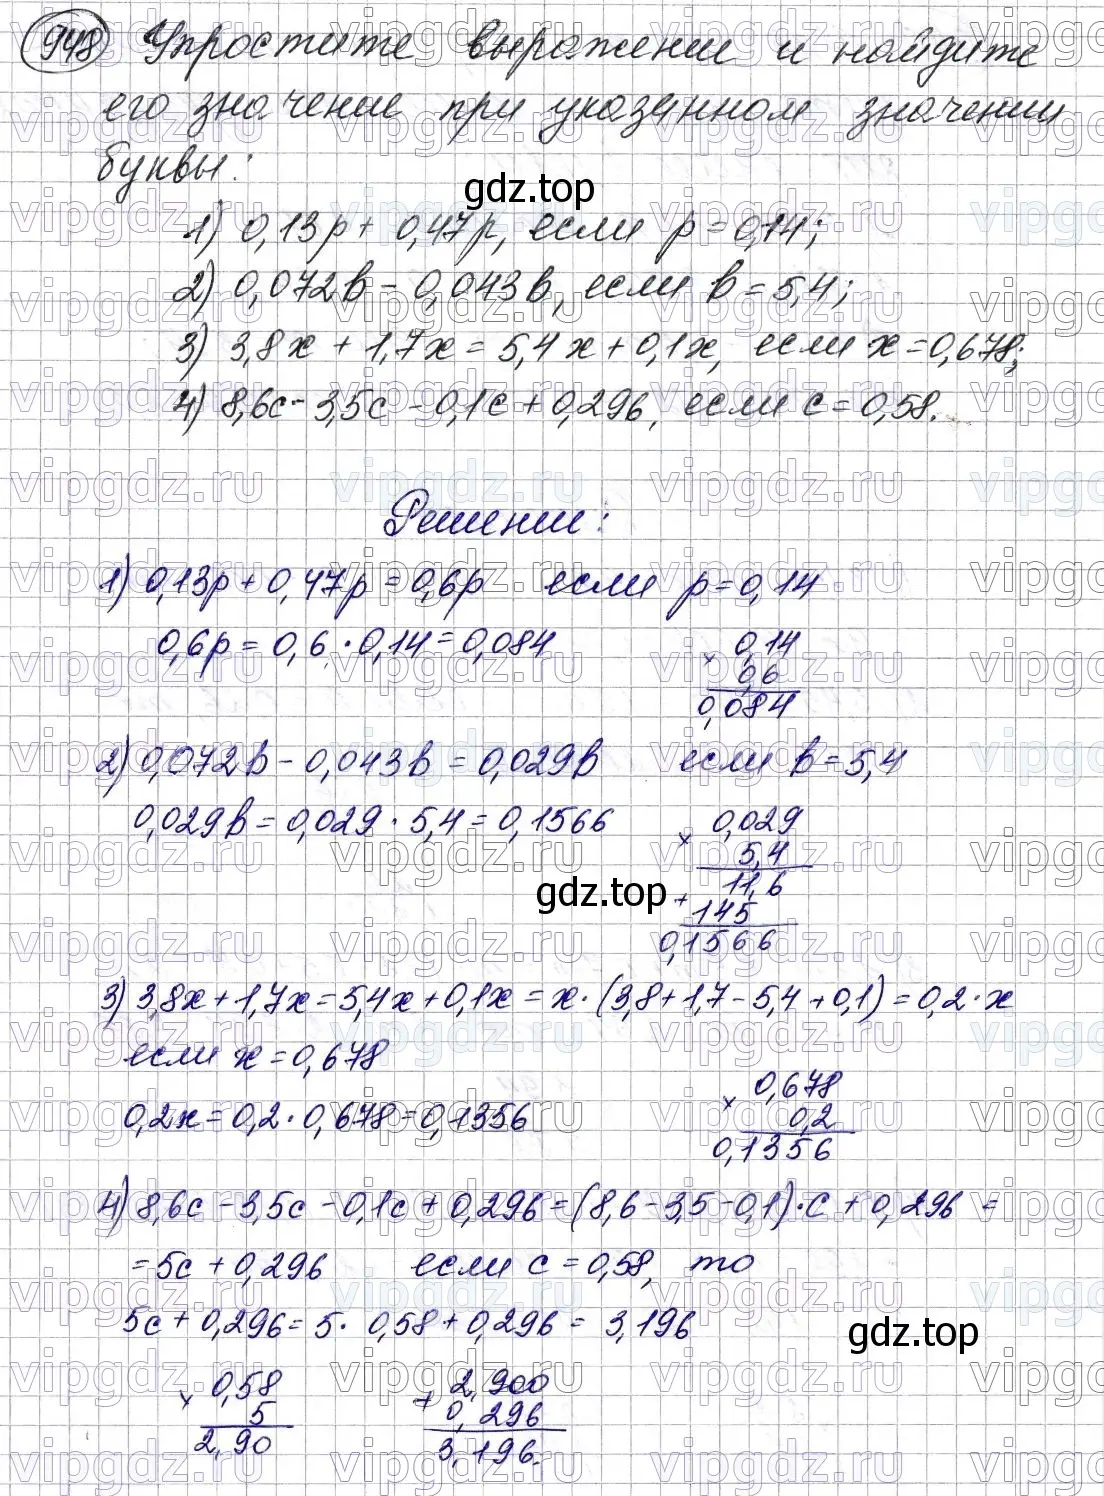 948 Упростите выражении и найдите
его значение при указанном значении
буквы:
gdz.top
1) 0,13p + 0,47p, если p = 0,14;
2) 0,072b - 0,043b, если b = 5,4;
3) 3,8x + 1,7x = 5,4x + 0,1x, если x = 0,678;
4) 8,6c - 3,5c - 0,1c + 0,296, если c = 0,58.
Решении:
1) 0,13p + 0,47p = 0,6p если p = 0,14
0,6p = 0,6 · 0,14 = 0,084
× 0,14
0,6
0,084
2) 0,072b - 0,043b = 0,029b если b = 5,4
0,029b = 0,029 · 5,4 = 0,1566
× 0,029
5,4
11,6
+ 145
0,1566
gdz.top
3) 3,8x + 1,7x = 5,4x + 0,1x = x · (3,8 + 1,7 - 5,4 + 0,1) = 0,2 · x
если x = 0,678
0,2x = 0,2 · 0,678 = 0,1356
× 0,678
0,2
0,1356
4) 8,6c - 3,5c - 0,1c + 0,296 = (8,6 - 3,5 - 0,1) · c + 0,296 =
= 5c + 0,296 если c = 0,58, то
5c + 0,296 = 5 · 0,58 + 0,296 = 3,196
gdz.top
× 0,58
5
2,90
+ 2,900
0,296
3,196.